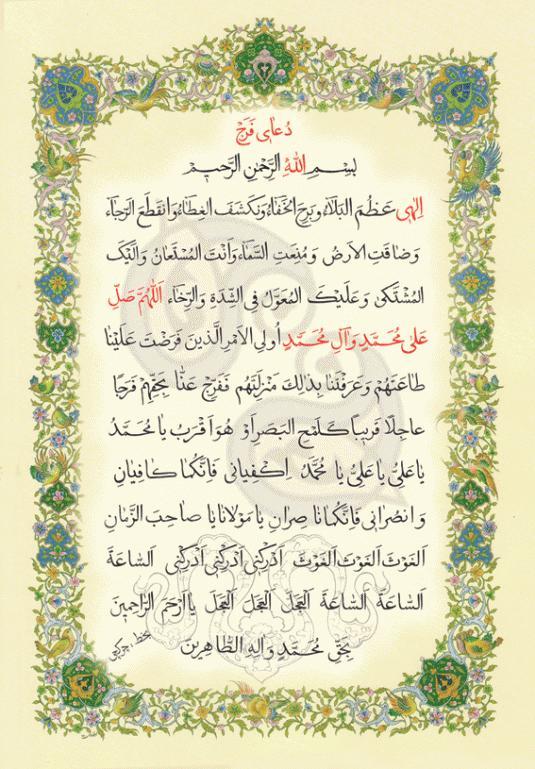 دُعای فَرَجْ
بِسْمِ اللهِ الرَّحْمٰنِ الرَّحیمِ
اِلٰهی عَظُمَ الْبَلاءُ وَبَرِحَ الْخَفاءُ وَانْکَشَفَ الْغِطاءُ وَانْقَطَعَ الرَّجاءُ
وَضاقَتِ الْاَرْضُ وَمُنِعَتِ السَّماءُ وَاَنْتَ الْمُسْتَعانُ وَاِلَیْکَ
الْمُشْتَکیٰ وَعَلَیْکَ الْمُعَوَّلُ فِی الشِّدَّةِ وَالرَّخاءِ اَللّٰهُمَّ صَلِّ
عَلیٰ مُحَمَّدٍ وَآلِ مُحَمَّدٍ اُولِی الْاَمْرِ الَّذینَ فَرَضْتَ عَلَیْنا
طاعَتَهُمْ وَعَرَّفْتَنا بِذٰلِکَ مَنْزِلَتَهُم فَفَرِّجْ عَنّا بِحَقِّهِمْ فَرَجًا
عاجِلًا قَریبًا کَلَمْحِ الْبَصَرِ اَوْ هُوَ اَقْرَبُ یا مُحَمَّدُ
یا عَلِیُّ یا عَلِیُّ یا مُحَمَّدُ اِکْفِیانی فَاِنَّکُما کافِیانِ
وَانْصُرانی فَاِنَّکُما ناصِرانِ یا مَوْلانا یا صاحِبَ الزَّمانِ
اَلْغَوْثَ اَلْغَوْثَ اَلْغَوْثَ اَدْرِکْنی اَدْرِکْنی اَدْرِکْنی اَلسّاعَةَ
اَلسّاعَةَ اَلسّاعَةَ اَلْعَجَلَ اَلْعَجَلَ اَلْعَجَلَ یا اَرْحَمَ الرّاحِمینَ
بِحَقِّ مُحَمَّدٍ وَآلِهِ الطّاهِرینَ